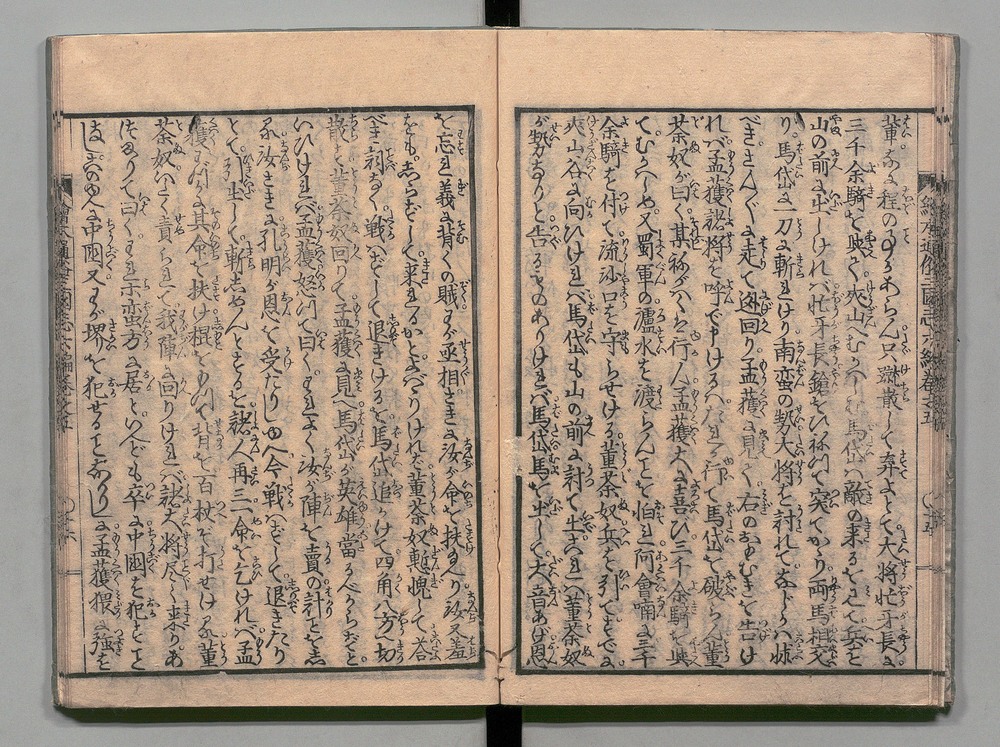 輩なに程の事かあらん只蹴散して弃よとて大将忙牙長に
三千余騎を与へて夾山へむかハしむ馬岱ハ敵の来るを見て兵を
山の前に出しけれバ忙牙長鎗をひねつて突てかゝり両馬相交
り馬岱に一刀に斬れけり南蛮の勢大将を討れて
べきさん〴〵に走て廻回り孟獲に見へ右のおもむきを告け
れバ孟獲諸将を呼で申けるハたれか行て馬岱を破らん董
荼奴が曰く某ねがハくハ行ん孟獲大に喜ひ三千余騎を與
てむかハしめ又蜀軍の瀘水を渡らんことを怕れ阿會喃に三千
余騎を付て流沙口を守らせける董荼奴兵を引てすでに
夾山谷に向ひけれバ馬岱も山の前に討て出これハ董荼奴
が勢なりと告るものありけれバ馬岱馬を出して大音あげ恩
を忘れ義に背くの賊わが丞相さきに汝が命を扶けしに又羞
をもしらずして来るかとよバゝりけれバ董荼奴慙愧して答
べき詞なく戦ハずして退きけるを馬岱追かけて四角八方に切
散す董荼奴回りて孟獲に見へ馬岱が英雄當るべからずと
いひけれバ孟獲怒つて曰くわれよく汝が陣を賣の計としれ
り汝さきに孔明が恩を受たりゆへ今戦ハずして退きたり
とて引出して斬しめんとするを諸人再三命を乞けれバ孟
獲わづかに其命を扶け棍をもつて背を百杖ぞ打せける董
荼奴ハいたく責られて我陣に回りけれバ諸大将尽く来りあ
つまりて曰くわれら蛮方に居といへども卒に中國を犯すこと
なし中國又わが堺を犯せることなかりしに孟獲猥に強を